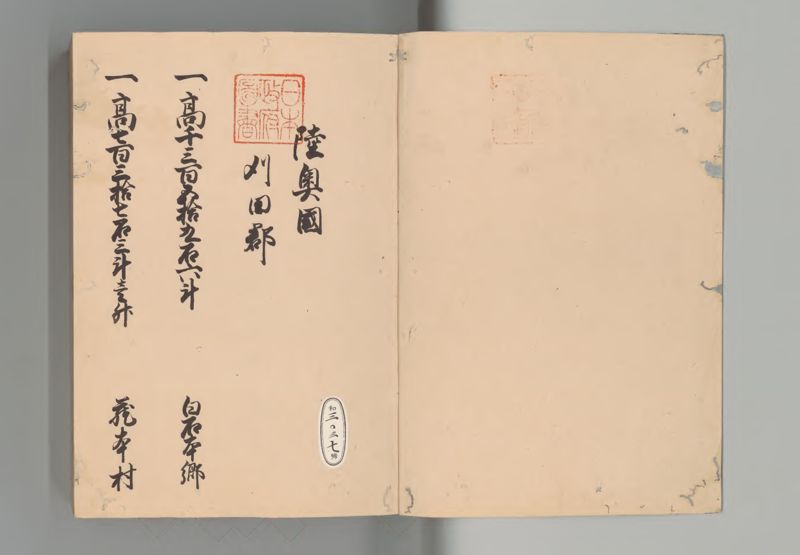 陸奥國
刈田郡
一高千三百五拾九石六斗
白石本郷
一高七百三拾七石三斗壱升
蔵本村
日本政府図書